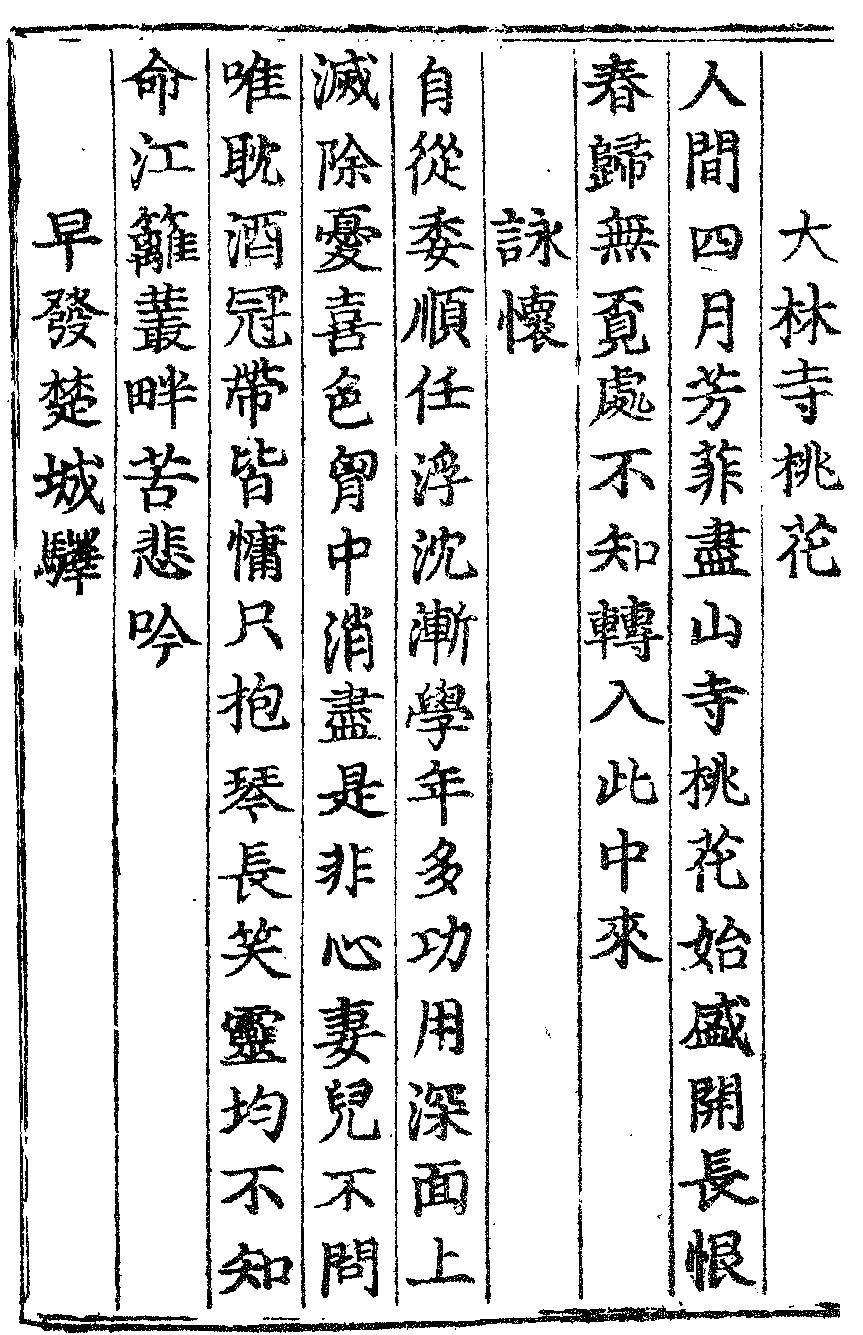 大林寺桃花
人間四月芳菲盡山寺桃花始盛開長恨
春歸無覔處不知轉入此中來
詠懷
自從委順任浮沈漸學年多功用深面上
滅除憂喜色胷中消盡是非心妻兒不問
唯耽酒冠帶皆慵只抱琴長笑靈均不知
命江籬叢畔苦悲吟
早發楚城驛